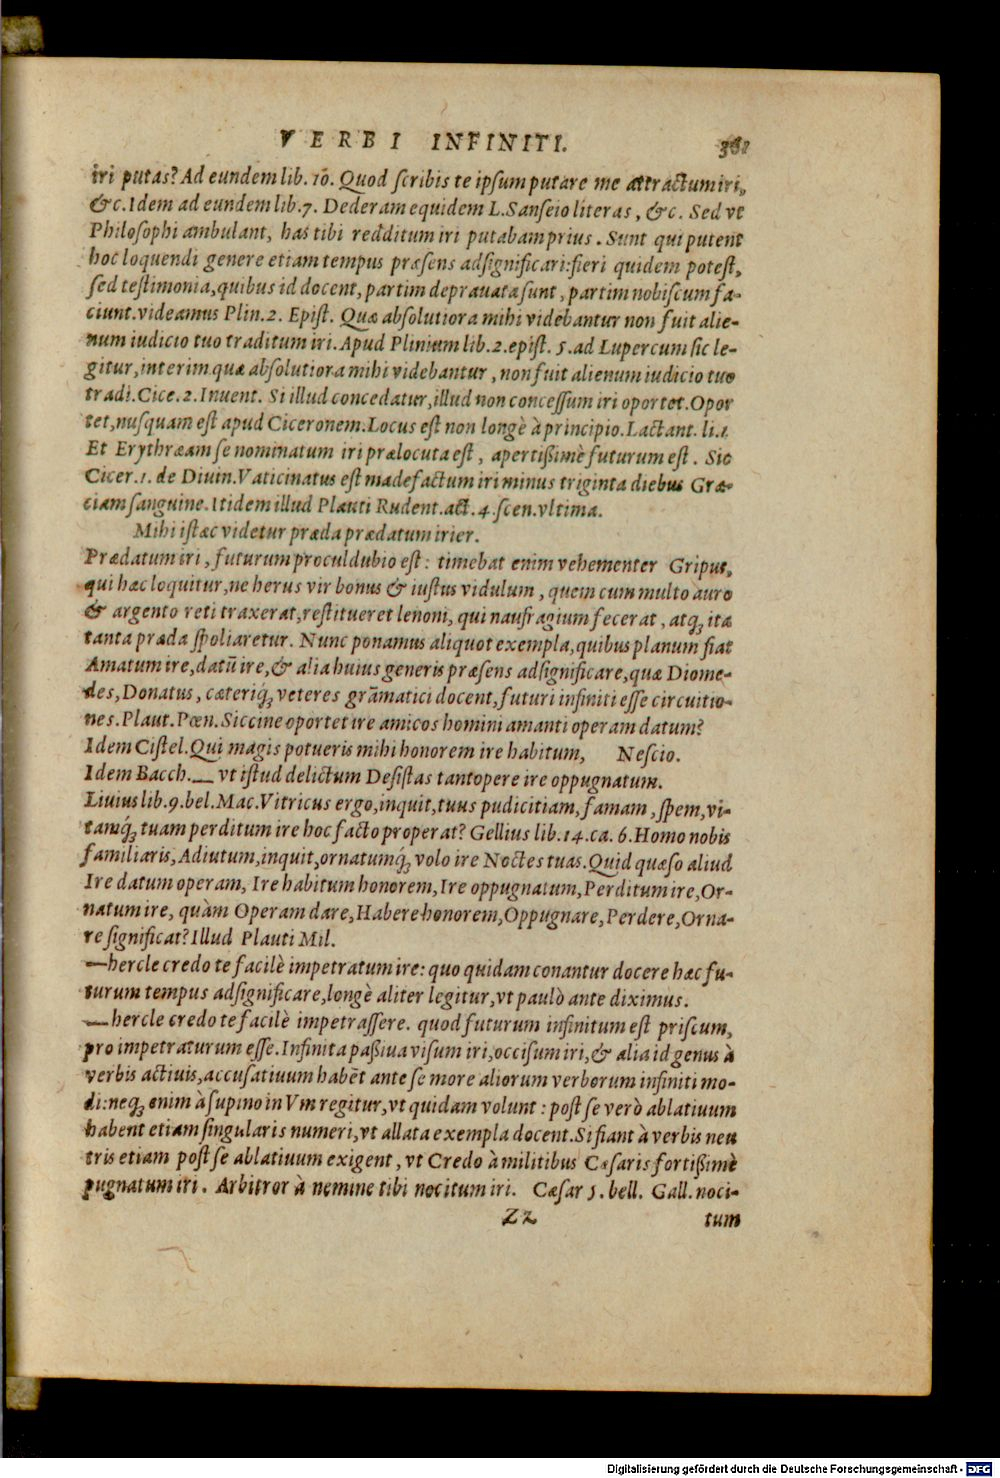 VERBI INFINITI. 361
iri putas? Ad eundem lib. 10. Quod scribis te ipsum putare me attractum iri,
&c. Idem ad eundem lib. 7. Dederam equidem L. Sanseio literas, &c. Sed vt
Philosophi ambulant, has tibi redditum iri putabam prius. Sunt qui putent
hoc loquendi genere etiam tempus præsens adsignificari: fieri quidem potest,
sed testimonia, quibus id docent, partim deprauata sunt, partim nobiscum fa-
ciunt. videamus Plin. 2. Epist. Quæ absolutiora mihi videbantur non fuit alie-
num iudicio tuo traditum iri. Apud Plinium lib. 2. epist. 5. ad Lupercum sic le-
gitur, interim quæ absolutiora mihi videbantur, non fuit alienum iudicio tuo
tradi. Cice. 2. Inuent. Si illud concedatur, illud non concessum iri oportet. Opor
tet, nusquam est apud Ciceronem. Locus est non longè à principio. Lactant. li. 1.
Et Erythræam se nominatum iri prælocuta est, apertißimè futurum est. Sic
Cicer. 1. de Diuin. Vaticinatus est madefactum iri minus triginta diebus Græ-
ciam sanguine. Itidem illud Plauti Rudent. act. 4. scen. vltima.
Mihi istæc videtur præda prædatum irier.
Prædatum iri, futurum proculdubio est: timebat enim vehementer Gripus,
qui hæc loquitur, ne herus vir bonus & iustus vidulum, quem cum multo auro
& argento reti traxerat, restitueret lenoni, qui naufragium fecerat, atq; ita
tanta præda spoliaretur. Nunc ponamus aliquot exempla, quibus planum fiat
Amatum ire, datū ire, & alia huius generis præsens adsignificare, quæ Diome-
des, Donatus, cæteriq́; veteres grāmatici docent, futuri infiniti esse circuitio-
nes. Plaut. Pœn. Siccine oportet ire amicos homini amanti operam datum?
Idem Cistel. Qui magis potueris mihi honorem ire habitum, Nescio.
Idem Bacch. — vt istud delictum Desistas tantopere ire oppugnatum.
Liuius lib. 9. bel. Mac. Vitricus ergo, inquit, tuus pudicitiam, famam, spem, vi-
tamq́; tuam perditum ire hoc facto properat? Gellius lib. 14. ca. 6. Homo nobis
familiaris, Adiutum, inquit, ornatumq́; volo ire Noctes tuas. Quid quæso aliud
Ire datum operam, Ire habitum honorem, Ire oppugnatum, Perditum ire, Or-
natum ire, quàm Operam dare, Habere honorem, Oppugnare, Perdere, Orna-
re significat? Illud Plauti Mil.
— hercle credo te facilè impetratum ire: quo quidam conantur docere hæc fu-
turum tempus adsignificare, longè aliter legitur, vt paulò ante diximus.
— hercle credo te facilè impetrassere. quod futurum infinitum est priscum,
pro impetraturum esse. Infinita paßiua visum iri, occisum iri, & alia id genus à
verbis actiuis, accusatiuum habēt ante se more aliorum verborum infiniti mo-
di: neq; enim à supino in Vm regitur, vt quidam volunt: post se verò ablatiuum
habent etiam singularis numeri, vt allata exempla docent. Si fiant à verbis neu
tris etiam post se ablatiuum exigent, vt Credo à militibus Cæsaris fortißimè
pugnatum iri. Arbitror à nemine tibi nocitum iri. Cæsar 5. bell. Gall. noci-
Zz tum
Digitalisierung gefördert durch die Deutsche Forschungsgemeinschaft - DFG